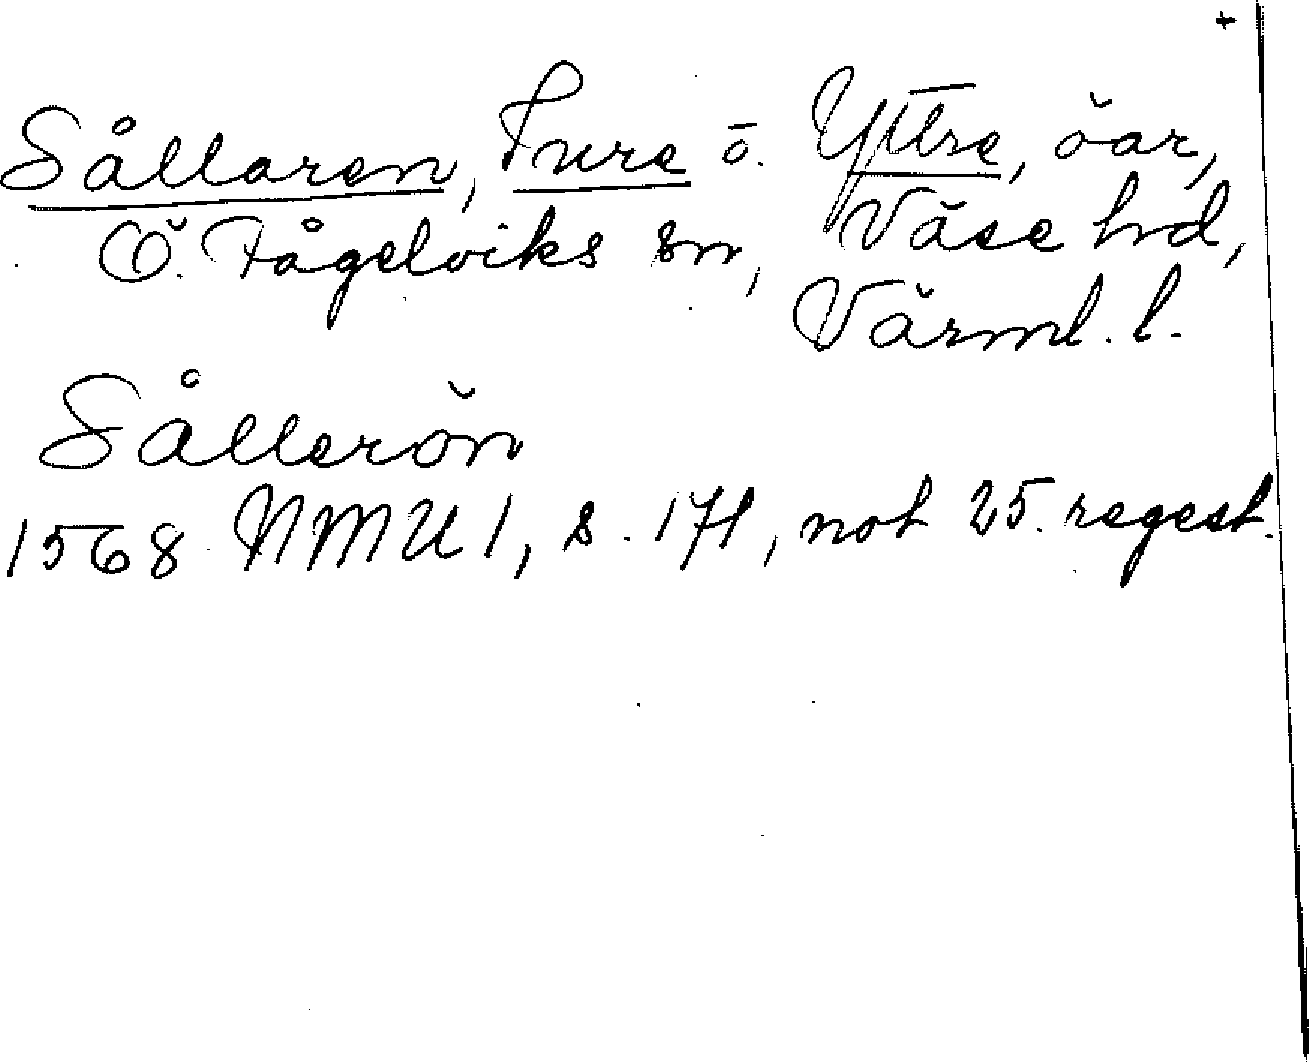 +
Sållaren, Inre o. Yttre, öar,
Ö. Fågelviks sn, Väse hrd,
Värml. l.
Sållerön
1568 NMU 1, s. 171, not 25. regest.